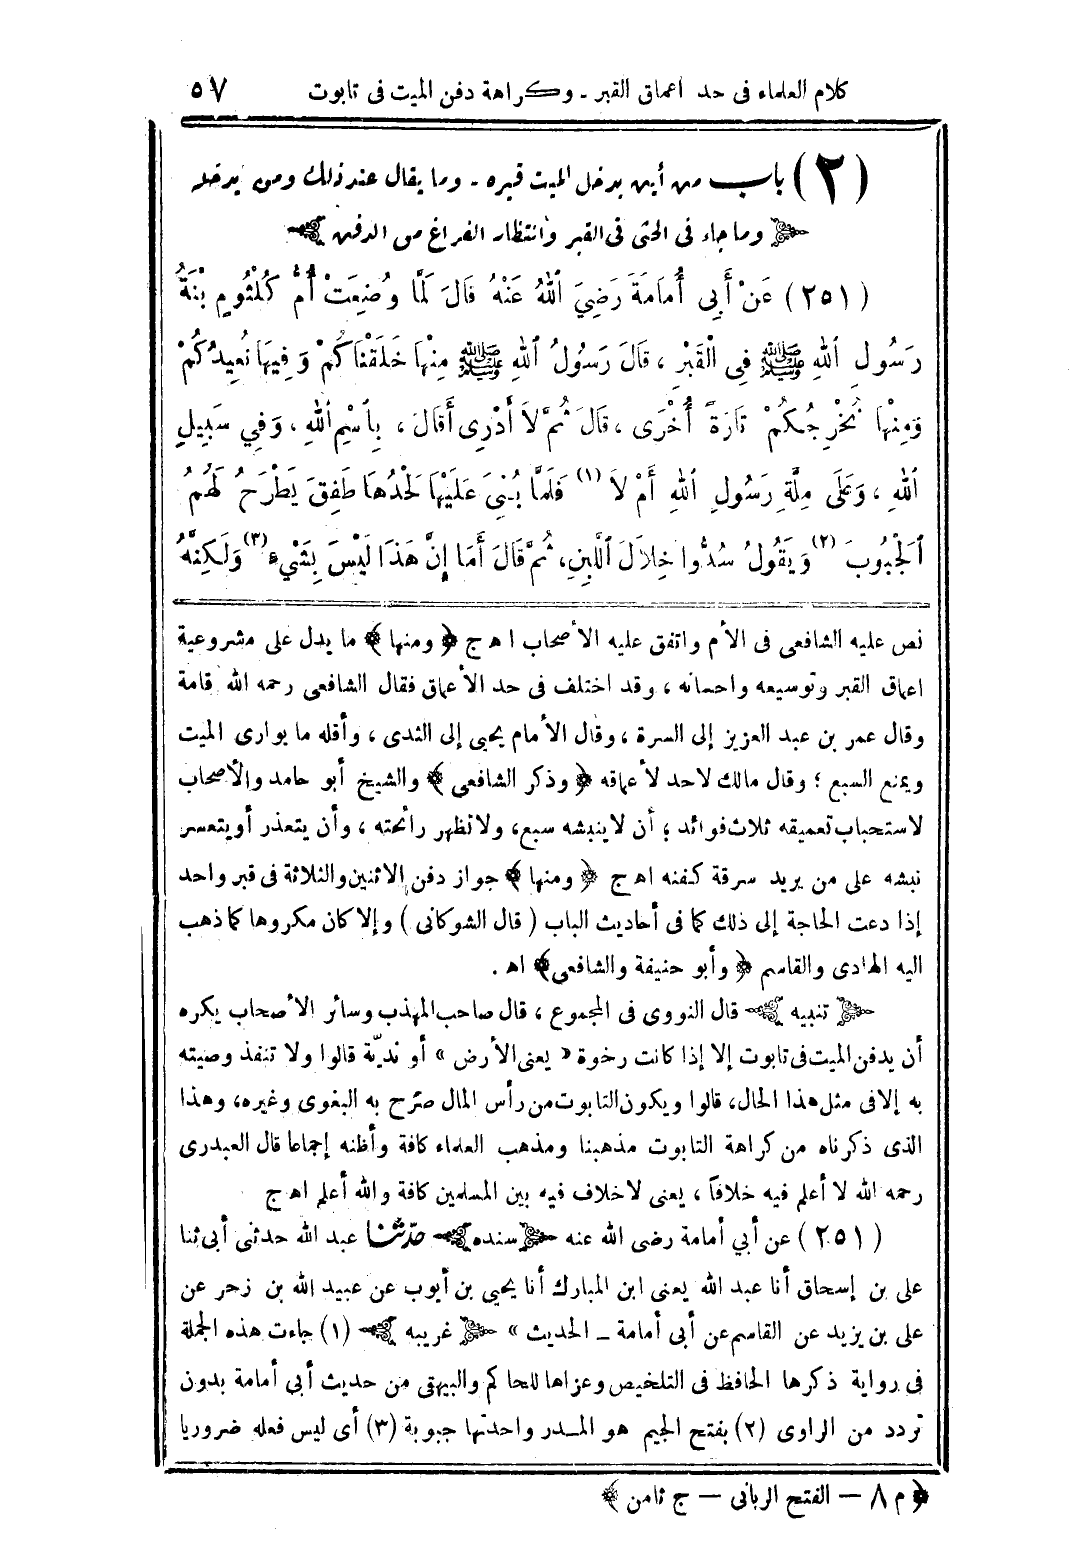 كلام العلماء فى حد اعماق القبر ـ وكراهة دفن الميت فى تابوت ٥٧
(٢) باب من أين يدخل الميت قبره ـ وما يقال عند ذلك ومن يدخله
وما جاء فى الحثى فى القبر وانتظار الفراغ من الدفن
(٢٥١) عَنْ أَبِى أُمَامَةَ رَضِيَ اللهُ عَنْهُ قَالَ لَمَّا وُضِعَتْ أُمُّ كُلْثُومٍ بِنْتُ
رَسُولِ اللهِ ﷺ فِى الْقَبْرِ ، قَالَ رَسُولُ اللهِ ﷺ مِنْهَا خَلَقْنَاكُمْ وَفِيهَا نُعِيدُكُمْ
وَمِنْهَا نُخْرِجُكُمْ تَارَةً أُخْرَى ، قَالَ ثُمَّ لاَ أَدْرِى أَقَالَ ، بِاسْمِ اللهِ ، وَفِي سَبِيلِ
اللهِ ، وَعَلَى مِلَّةِ رَسُولِ اللهِ أَمْ لاَ (١) فَلَمَّا بُنِىَ عَلَيْهَا لَحْدُهَا طَفِقَ يَطْرَحُ لَهُمُ
الْجَبُوبَ (٢) وَيَقُولُ سُدُّوا خِلاَلَ اللَّبِنِ ، ثُمَّ قَالَ أَمَا إِنَّ هَذَا لَيْسَ بِشَىْءٍ (٣) وَلَكِنَّهُ
نص عليه الشافعى فى الأم واتفق عليه الأصحاب ا ه ج ﴿ ومنها ﴾ ما يدل على مشروعية
اعماق القبر وتوسيعه واحسانه ، وقد اختلف فى حد الأعماق فقال الشافعى رحمه الله قامة
وقال عمر بن عبد العزيز إلى السرة ، وقال الأمام يحيى إلى الثدى ، وأقله ما يوارى الميت
ويمنع السبع ؛ وقال مالك لا حد لأعماقه ﴿ وذكر الشافعى ﴾ والشيخ أبو حامد والأصحاب
لاستحباب تعميقه ثلاث فوائد ؛ أن لا ينبشه سبع، ولا تظهر رائحته ، وأن يتعذر أو يتعسر
نبشه على من يريد سرقة كفنه اه ج ﴿ ومنها ﴾ جواز دفن الاثنين والثلاثة فى قبر واحد
إذا دعت الحاجة إلى ذلك كما فى أحاديث الباب ( قال الشوكانى ) وإلا كان مكروها كما ذهب
اليه الهادى والقاسم ﴿ وأبو حنيفة والشافعى ﴾ اه .
تنبيه قال النووى فى المجموع ، قال صاحب المهذب وسائر الأصحاب يكره
أن يدفن الميت فى تابوت إلا إذا كانت رخوة « يعنى الأرض » أو نديّة قالوا ولا تنفذ وصيته
به إلا فى مثل هذا الحال، قالوا ويكون التابوت من رأس المال صرّح به البغوى وغيره، وهذا
الذى ذكرناه من كراهة التابوت مذهبنا ومذهب العلماء كافة وأظنه إجماعا قال العبدرى
رحمه الله لا أعلم فيه خلافاً ، يعنى لا خلاف فيه بين المسلمين كافة والله أعلم اه ج
(٢٥١) عن أبي أمامة رضى الله عنه سنده حدّثنا عبد الله حدثنى أبى ثنا
على بن إسحاق أنا عبد الله يعنى ابن المبارك أنا يحيى بن أيوب عن عبيد الله بن زحر عن
على بن يزيد عن القاسم عن أبى أمامة ـ الحديث » غريبه (١) جاءت هذه الجملة
فى رواية ذكرها الحافظ فى التلخيص وعزاها للحاكم والبيهقى من حديث أبي أمامة بدون
تردد من الراوى (٢) بفتح الجيم هو المدر واحدتها جبوبة (٣) أى ليس فعله ضروريا
﴿ م ٨ ــ الفتح الربانى ــ ج ثامن ﴾